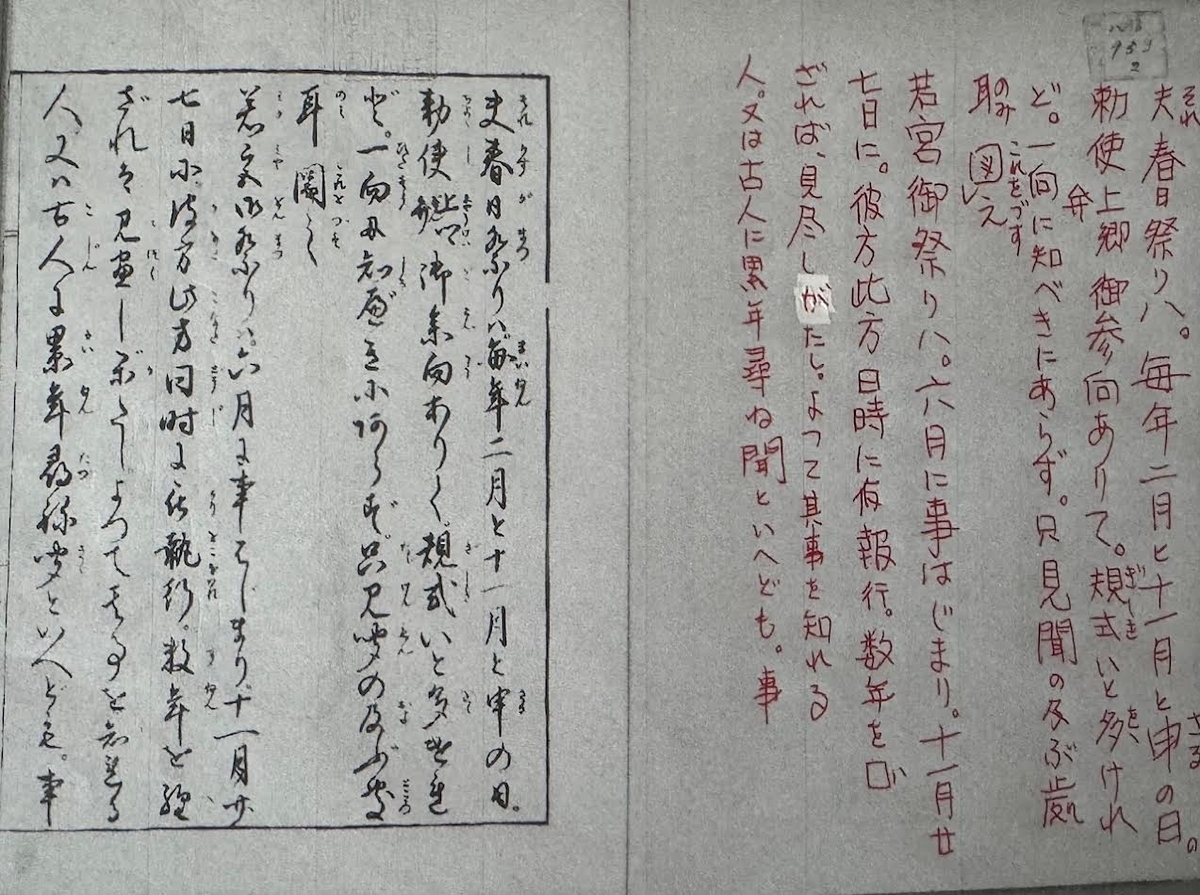 夫春日祭りハ。毎年二月と十一月と申の日。の
それ
さる
勅使上郷御参向ありて。規式いと多けれ
弁
ぎしき
ど。一向に知べきにあらず。只見聞の及ぶ處
耳のみ図レえ
これをづす
若宮御祭りハ。六月に事はじまり。十一月廿
七日に。彼方此方日時に仮報行。数年を
ざれば、見尽しがたし。よつて其事を知れる
人。又は古人に累年尋ね聞といへども。事
夫春日祭りハ毎年二月と十一月と申の日。
勅使 御参向ありて規式いと多けれ
ど。一向に知べきにあらず只見聞の及ぶ處
耳
若宮御祭りハ。六月に事はじまり。十一月廿
七日に彼方此方同時に 執行。数年を経
ざれば見尽しがたしよつて其事を知れる
人。又ハ古人に累年尋ね聞といへども。事